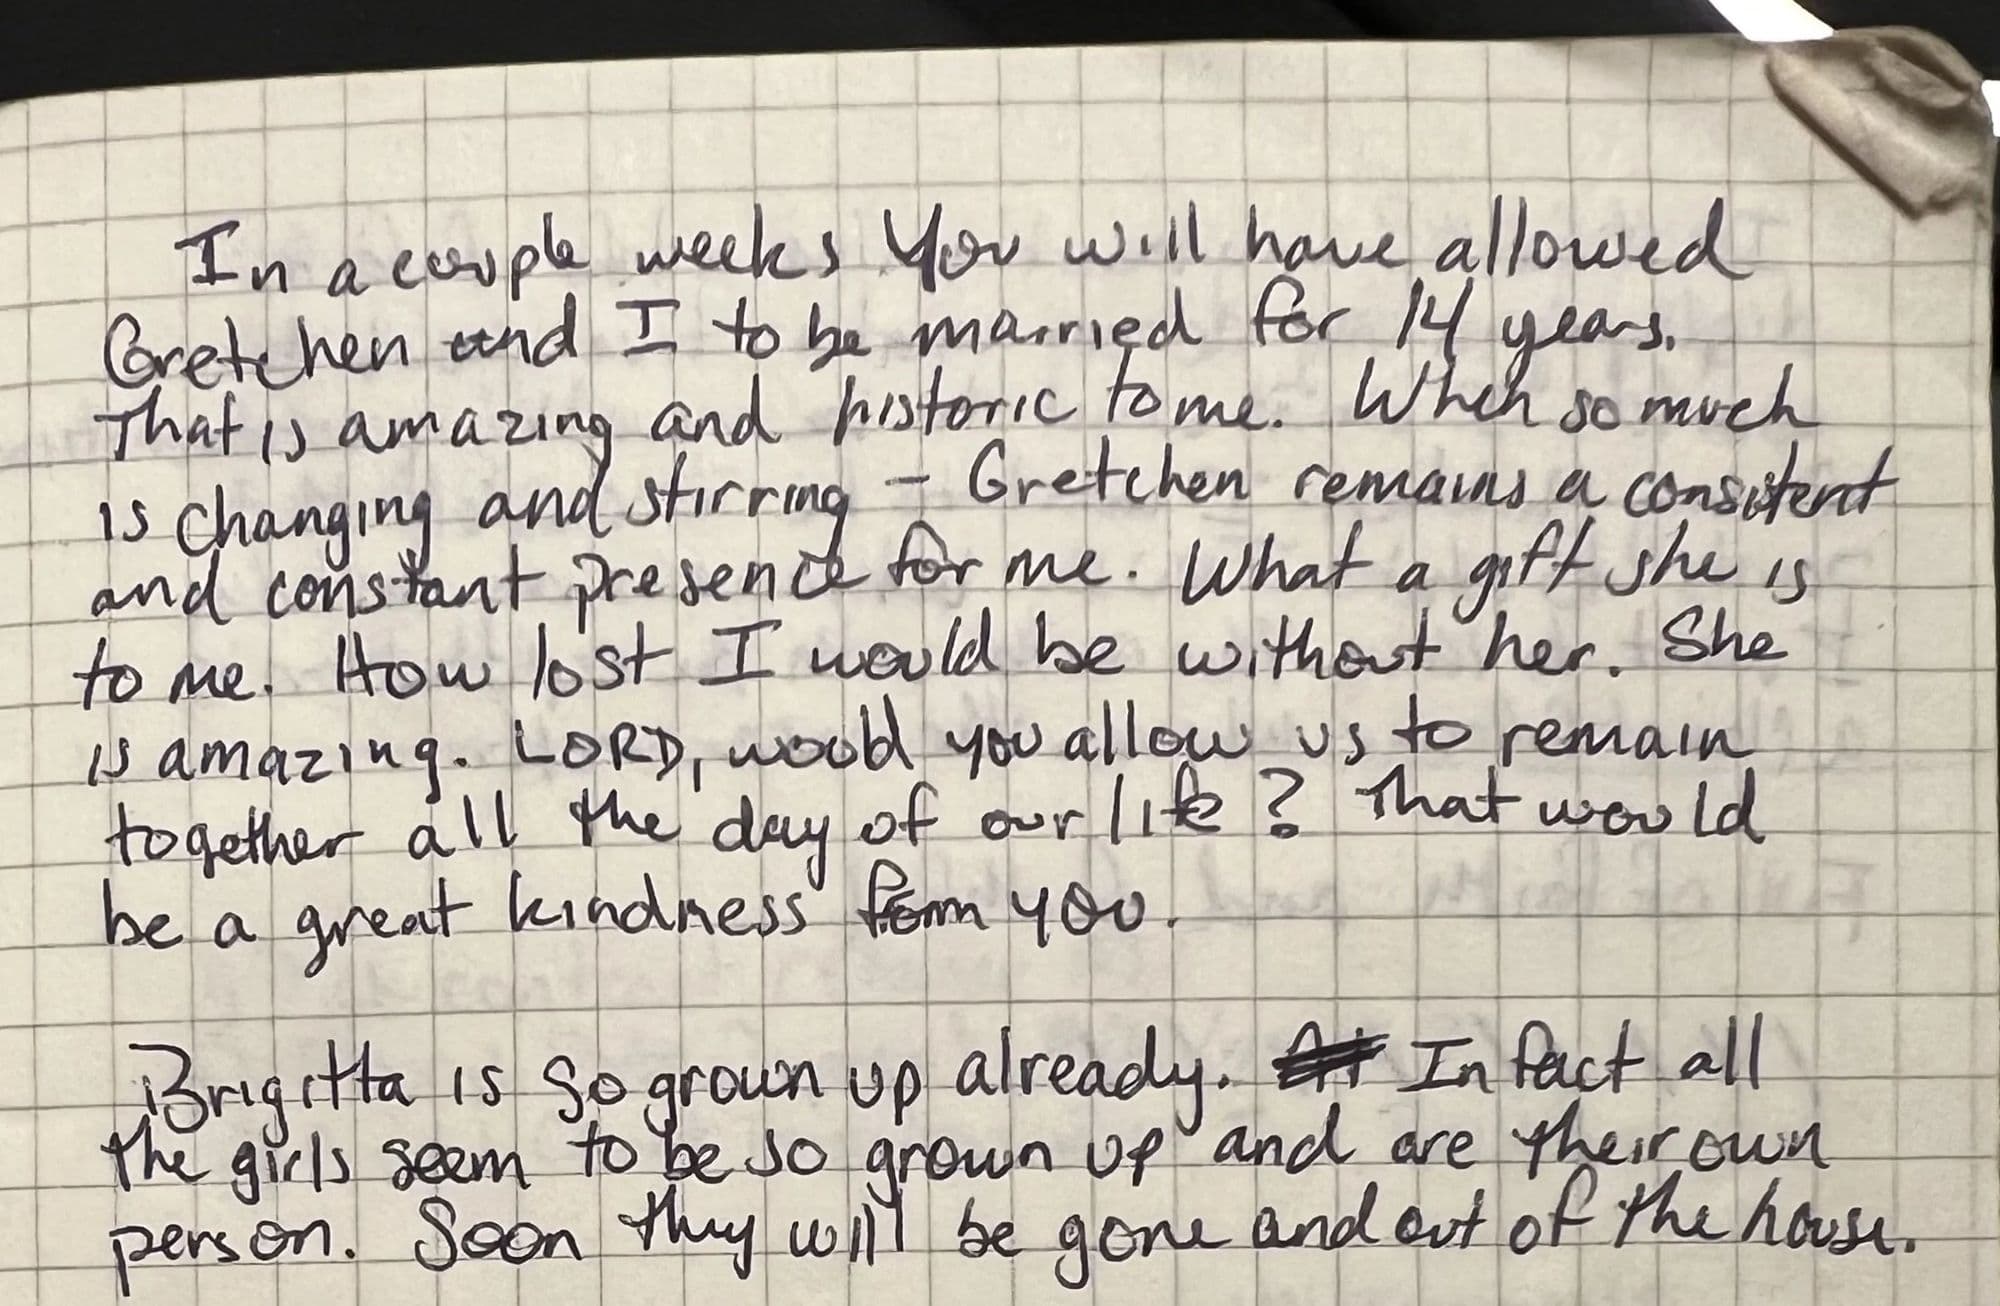 In a couple weeks You will have allowed
Gretchen and I to be married for 14 years.
That is amazing and historic to me. When so much
is changing and stirring - Gretchen remains a consistent
and constant presence for me. What a gift she is
to me. How lost I would be without her. She
is amazing. LORD, would you allow us to remain
together all the day of our life? That would
be a great kindness from you.
Brigitta is so grown up already. In fact all
the girls seem to be so grown up and are their own
person. Soon they will be gone and out of the house.